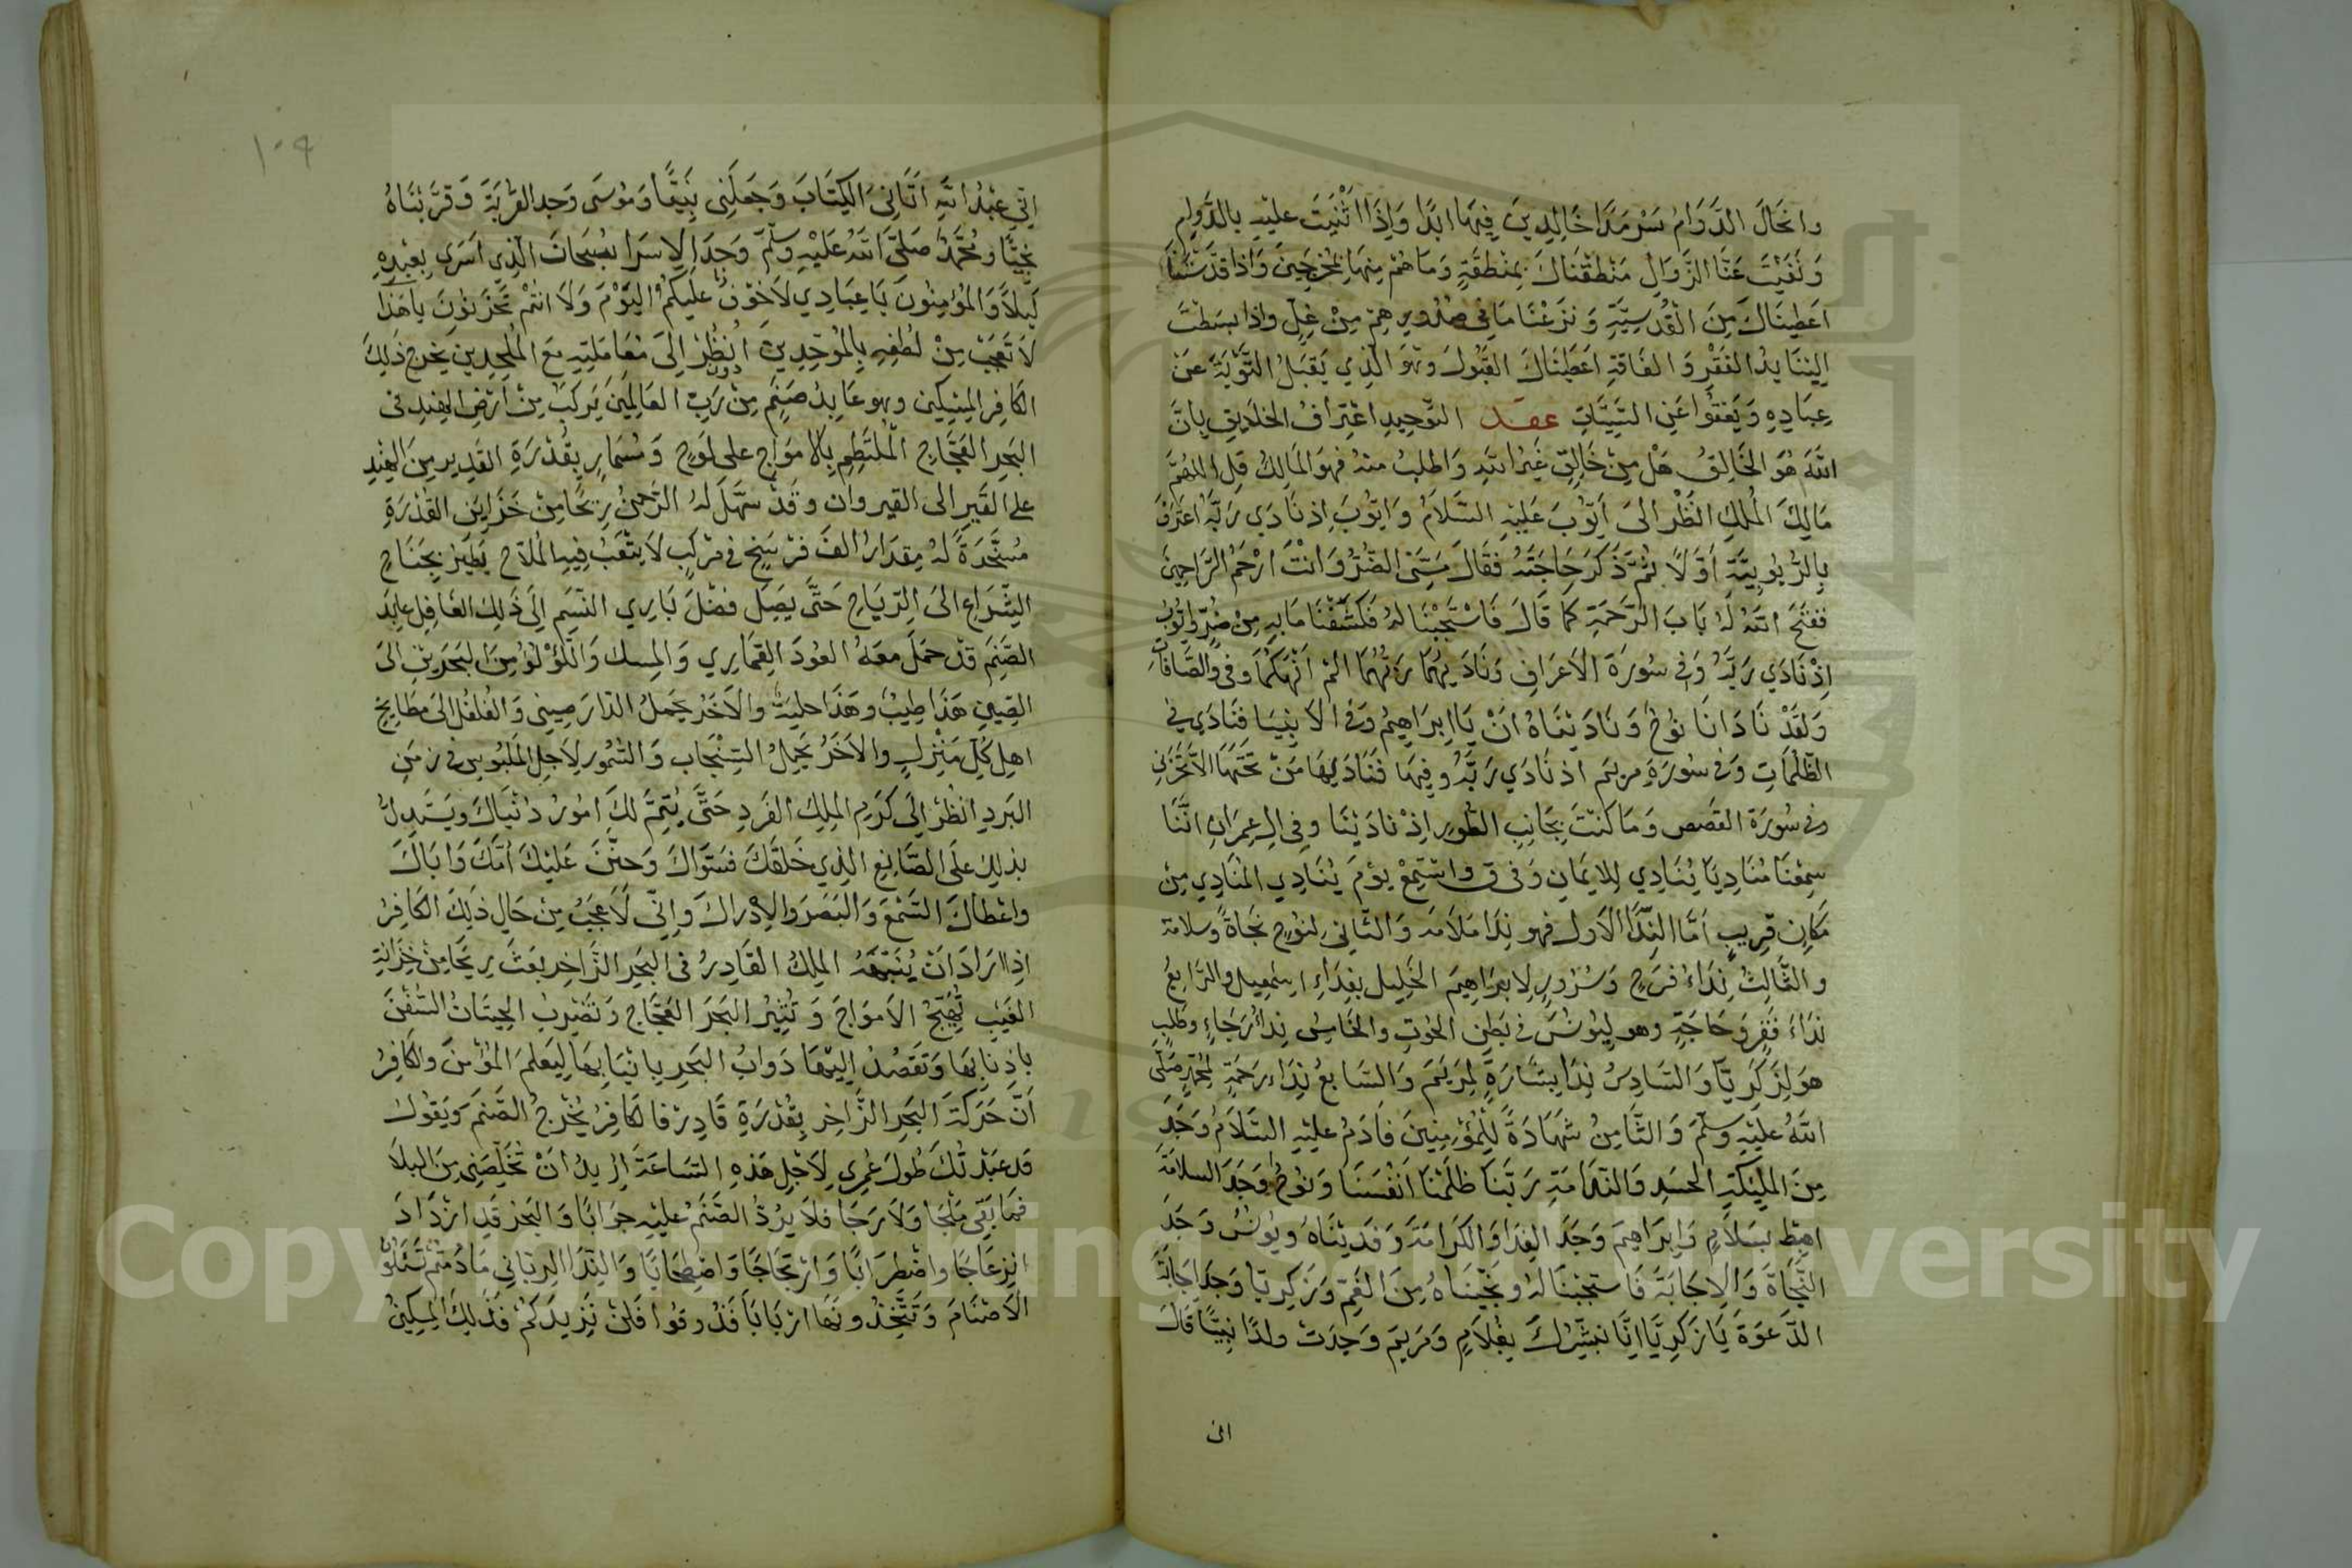 وانحال الدَّوَامُ سَرْمَدًا خَالِدِينَ فِيهَا ابَدًا وَإِذَا اثْنَيْتَ عليْهِ بالدَّوام
وَنَفَيْتَ عَنَّا الزَّوَالِ مَنْطَقْنَاكَ بِمنْطَقَةٍ وَمَا هُمْ مِنْهَا بِمُخْرَجِينَ وَاذَا قدَّسْتَنَا
اعَطيْنَاكَ مِنَ الْقُدْسِيَّةِ وَنَزَعْنَا مَا فى صُدُورِهِمْ مِنْ غِلٍّ واذا بسَطتَ
اِلَيْنَا يدُ الفَقْرِ وَ الفَاقةِ اعَطَيْنَاكَ القَبُولَ وَهُوَ الَّذِي يَقبَلُ التَّوْبَةَ عَنْ
عِبَادِهِ وَيَعْفُوا عَنِ السَّيِّئَاتِ عقد التَّوحِيدِ اعْتِرَافُ الخلايِقِ بِانَّ
اللهَ هُوَ الخَالِقُ هَلْ مِنْ خَالِقٍ غَيْرُ اللهِ وَاطْلبُ منهُ فهوَ المَالِكُ قلِ اللهُمَّ
مَالِكَ المُلكِ انظُر الىَ ايّوُبَ عَليْهِ السَّلَامُ وَايّوُبَ اِذ نَادَي رَبَّهُ اعترَفَ
بِالرُّبُوبِيَّةِ اَوَّلًا ثمَّ ذَكَرَ حَاجَتَهُ فَقَالَ مَسَّنِيَ الضُّرُّ وَانْتَ ارْحَمُ الرَّاحِمِينَ
ففتَحَ اللهُ لَهُ بَابَ الرَّحْمَةِ كمَا قَالَ فَاسْتَجَبْنَا لهُ فَكَشَفْنَا مَا بِهِ مِنْ ضُرٍّ وايّوبُ
اِذْ نَادَي رَبَّهُ وَفى سُورَةِ الاَعْرَافِ وَنَادَيهُمَا رَبُّهُمَا الَمْ انْهَكمَا وفى وَالصَّافَاتِ
وَلقَدْ نَادَانَا نُوحٌ وَنَادَيْنَاهُ انْ يَا اِبرَاهِيمُ وَفى الاَنبِيَا فَنَادَي فى
الظّلُمَاتِ وَفى سُورَةِ مريَم اذ نَادَي رَبَّهُ وفِيهَا فَنَادَيهَا مَنْ تَحْتَهَا الاَّ تَحْزَنى
وفى سُورَةِ القَصَصِ وَمَا كنْتَ بجَانِبِ الطّورِ اِذْ نَادَيْنَا وَفى الِ عِمرَانَ انَّنَا
سَمِعْنَا مُنَادِيَا يُنَادِي لِلايِمَانِ وَفى ق واسْتَمِعْ يوْمَ يُنَادِي المُنَادِي مِنْ
مَكَانٍ قرِيبٍ امَّا النِّدَا الاَول فهو نِدَا مَلاَمَه وَالثّانى لِنوُحٍ نجَاةً وسلامة
والثَّالِثُ نِدَاءُ فرَحٍ وَسُرُورٍ لِابرَاهِيمَ الخَلِيل بفِدَاءِ اسمعِيل والرَابِعُ
نِدَاءَ فَقْرٍ وَحَاجَةٍ وهو ليُونُسَ فى بَطنِ الحُوتِ والخَامِسُ نِدَاءُ رَجَاءٍ وطَلبٍ
هوَ لِزَكَرِيّا وَالسَّادِسُ نِدَا بِشَارَةٍ لِمَريَمَ وَالسَّابعُ نِدَاء رَحمَةٍ لمحَمدٍ صَلّى
اللهُ عَليْهِ وَسلَّمَ وَالثَّامِنُ شَهَادَةً لِلمُؤْمِنِينَ فَادَمُ عليْهِ السَّلَامُ وَجَدَ
مِنَ المليِكَةِ الحسَدِ وَالنّدَامَةِ رَبَّنَا ظلَمْنَا اَنفُسَنَا وَنُوحُ وَجَدَ السلامَة
اهبِطْ بسَلاَمٍ وَابِرَاهِيمَ وَجَدَ الفِدَا وَالكَرَامَةَ وَفَدَيْنَاهُ وَيونُسُ وَجَدَ
النَّجَاةَ وَالاِجَابَةَ فَاستجَبْنَا لهُ وَنَجَّيْنَاهُ مِنَ الغَمِّ وَزَكرِيّا وَجدَ اجَابَةَ
الدَّعوَةَ يَا زَكَرِيَّا اِنَّا نبَشِّرُكَ بِغُلاَمٍ وَمَريَمَ وَجَدَتْ ولدًا نبِيًّا قَالَ
انى
١٠٩
اِنّي عبْدُ اللهِ اتَانِىَ الكِتَابَ وَجَعَلَنِى نَبِيًّا وَمُوسَى وَجد القُربَةَ وَقرَّبْنَاهُ
نجَيًّا ومُحَمَّدٌ صَلىَّ اللهُ عَليْهِ وَسلّمَ وَجَدَ الاِسرَا سُبحَانَ الَّذِي اسرَي بِعَبْدِهِ
لَيلاً وَالمُؤمِنوُنَ يَا عِبَادِي لاَ خوْفٌ عليْكُمُ اليَوْمَ وَلاَ انتُمْ تَحْزَنوُنَ يا هَذَا
لاَ تَعجَبْ مِنْ لطْفِهِ بِالمُوَحِّدِينَ اُنْظُرْ اِلىَ مُعَامَلَتِهِ مَعَ المُلحِدِين يَخرج ذَلِكَ
الكَافِر المِسْكِين وهو عَابِدُ صَنَمٍ مِنْ دون رَبِّ العَالمِينَ يَركَبُ مِنْ ارْضِ الهِندِ فى
البَحرِ العَجَّاجِ المُلتَطِمِ بِالاَموَاجِ على لَوحٍ وَمُسْمَارٍ بقُدْرَةِ القَدِيرِ مِنَ الهِندِ
على القَيرِ الىَ القيروان وقَدْ سَهَّلَ لهُ الرَّحمنُ ريحًا مِنْ خَزَايِنِ القُدْرَةِ
مُسَخَّرَةً لهُ مِقدَارُ الفَ فرْسَخٍ فى مَرْكَبٍ لاَ يتْعَبُ فِيهِ المَلاّحُ يَطيرُ بجَنَاحِ
الشّرَاعِ الىَ الرّيَاحِ حَتّى يَصِلَ فضْلَ بَارِي النّسَم اِلَى ذَلِكَ الغَافِل عابِدَ
الصّنَمِ قدْ حمَلَ معَهُ العُودَ القِمَارِي وَالمِسكَ وَالّلؤْلؤُ مِنَ البَحرَينِ الىَ
الصِّينِ هَذَا طِيبٌ وهَذَا حليَةٌ والاَخَرُ يَحمِلُ الدّارَصِينى وَالفُلفُل الىَ مطَابِخِ
اهلِ كلِّ مَنْزِلٍ والاَخَرُ يحْمِلُ السِّنْجَاب وَالسّمُّور لاَجلِ المَلبُوسِ فى زَمَنِ
البَردِ انظُرْ اِلَى كَرَمِ المَلِكِ الفَردِ حَتَّى يُتِمَّ لكَ امُورُ دُنيَاكَ ويَسْتَدِلُّ
بذلِكَ علَى الصَّانِعِ الذِي خَلقَكَ فسَوَّاكَ وَحنَّنَ عَليْكَ امَّكَ وَابَاكَ
واعْطاكَ السَّمْعَ وَالبَصَرَ وَالاِدْرَاكَ وَاِنّى لاَعجَبُ مِنْ حَالِ ذَلِكَ الكَافِرْ
اِذا ارَادَ انْ يُنَبِّهَهُ المَلِكُ القَادِرُ فى البَحرِ الزَّاخِر بعَثَ رِيحًا مِنْ خزَانَةِ
الغَيبِ تُهَيّجُ الاَموَاجَ وَ تُثِيْرُ البَحرَ العَجَّاج وَتَضْرِبُ الحِيتَانُ السُّفُنَ
باذنابِهَا وَتَقصُدُ اِليْهَا دَوَابُّ البَحرِ بِانيَابِهَا لِيَعلمَ المُؤمِنَ والكَافِرُ
اَنَّ حَرَكَةَ البَحرِ الزَّاخِرِ بِقُدْرَةِ قَادِرْ فالكَافِرُ يُخْرِجُ الصَّنَمَ وَيَقُولُ
قد عبَدتُكَ طُولَ عُمرِي لاَجْلِ هَذِهِ السَّاعَةَ اُرِيدُ انْ تُخَلّصَنِى مِنَ البلاَ
فمَا بَقِى مَلجَا وَلاَ رَجَا فلاَ يرُدُّ الصّنَمُ عليْهِ جوَابًا وَالبَحرُ قدِ ازْدَادَ
انزِعَاجًا واضْطِرَابًا وَارْتجَاجًا وَاصْطِحَابًا وَالنِّدَا الرّبّانى مَا دُمتُمْ تَسْئلوُنَ
الاَصْنَامَ وَتَتَّخِذُونَهَا ارْبَابًا فَذُوقوُا فَلَنْ نَزِيدَكمْ فَذَلِكَ المِسكِينُ